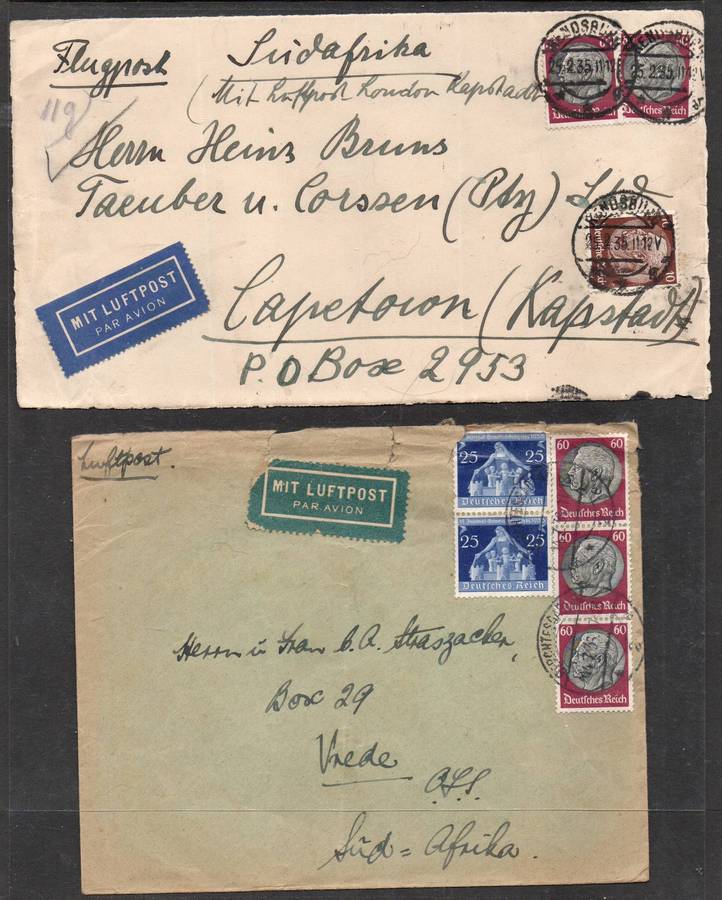 Flugpost Südafrika
(Mit Luftpost London Kapstadt
119
Herrn Heinz Bruns
Taeuber u. Corssen (Pty) Ltd
Capetown (Kapstadt)
P.O Box 2953
MIT LUFTPOST
PAR AVION
RENDSBURG
25.2.35.11-12V
Deutsches Reich
RENDSBURG
25.2.35.11-12V
Deutsches Reich
RENDSBURG
25.2.35.11-12V
10
Luftpost.
MIT LUFTPOST
PAR AVION
25 25
Deutsches Reich
25 25
Deutsches Reich
60 60
Deutsches Reich
60 60
Deutsches Reich
60 60
Deutsches Reich
Herrn u Frau C. A. Straszacker,
Box 29
Vrede
O.F.S.
Süd=Afrika.